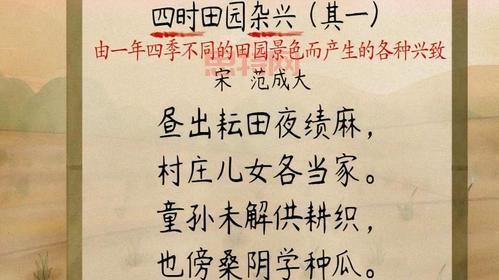 四时田园杂兴（其一）
由一年四季不同的田园景色而产生的各种兴致
宋 范成大
昼出耘田夜绩麻，
村庄儿女各当家。
童孙未解供耕织，
也傍桑阴学种瓜。